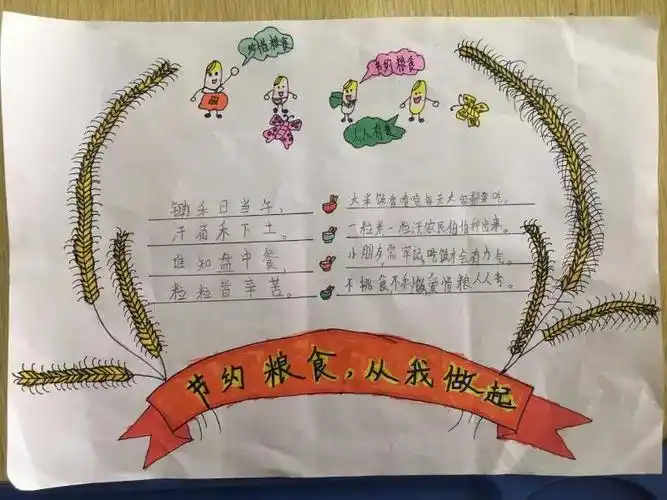 珍惜粮食
节约粮食
人人有责
锄禾日当午，
汗滴禾下土。
谁知盘中餐，
粒粒皆辛苦。
大米饭香喷喷每天
一粒米一粒汗农民伯伯种出来。
小朋友需牢记吃饭才会有力气。
不挑食不剩饭爱惜粮人人夸。
节约粮食，从我做起